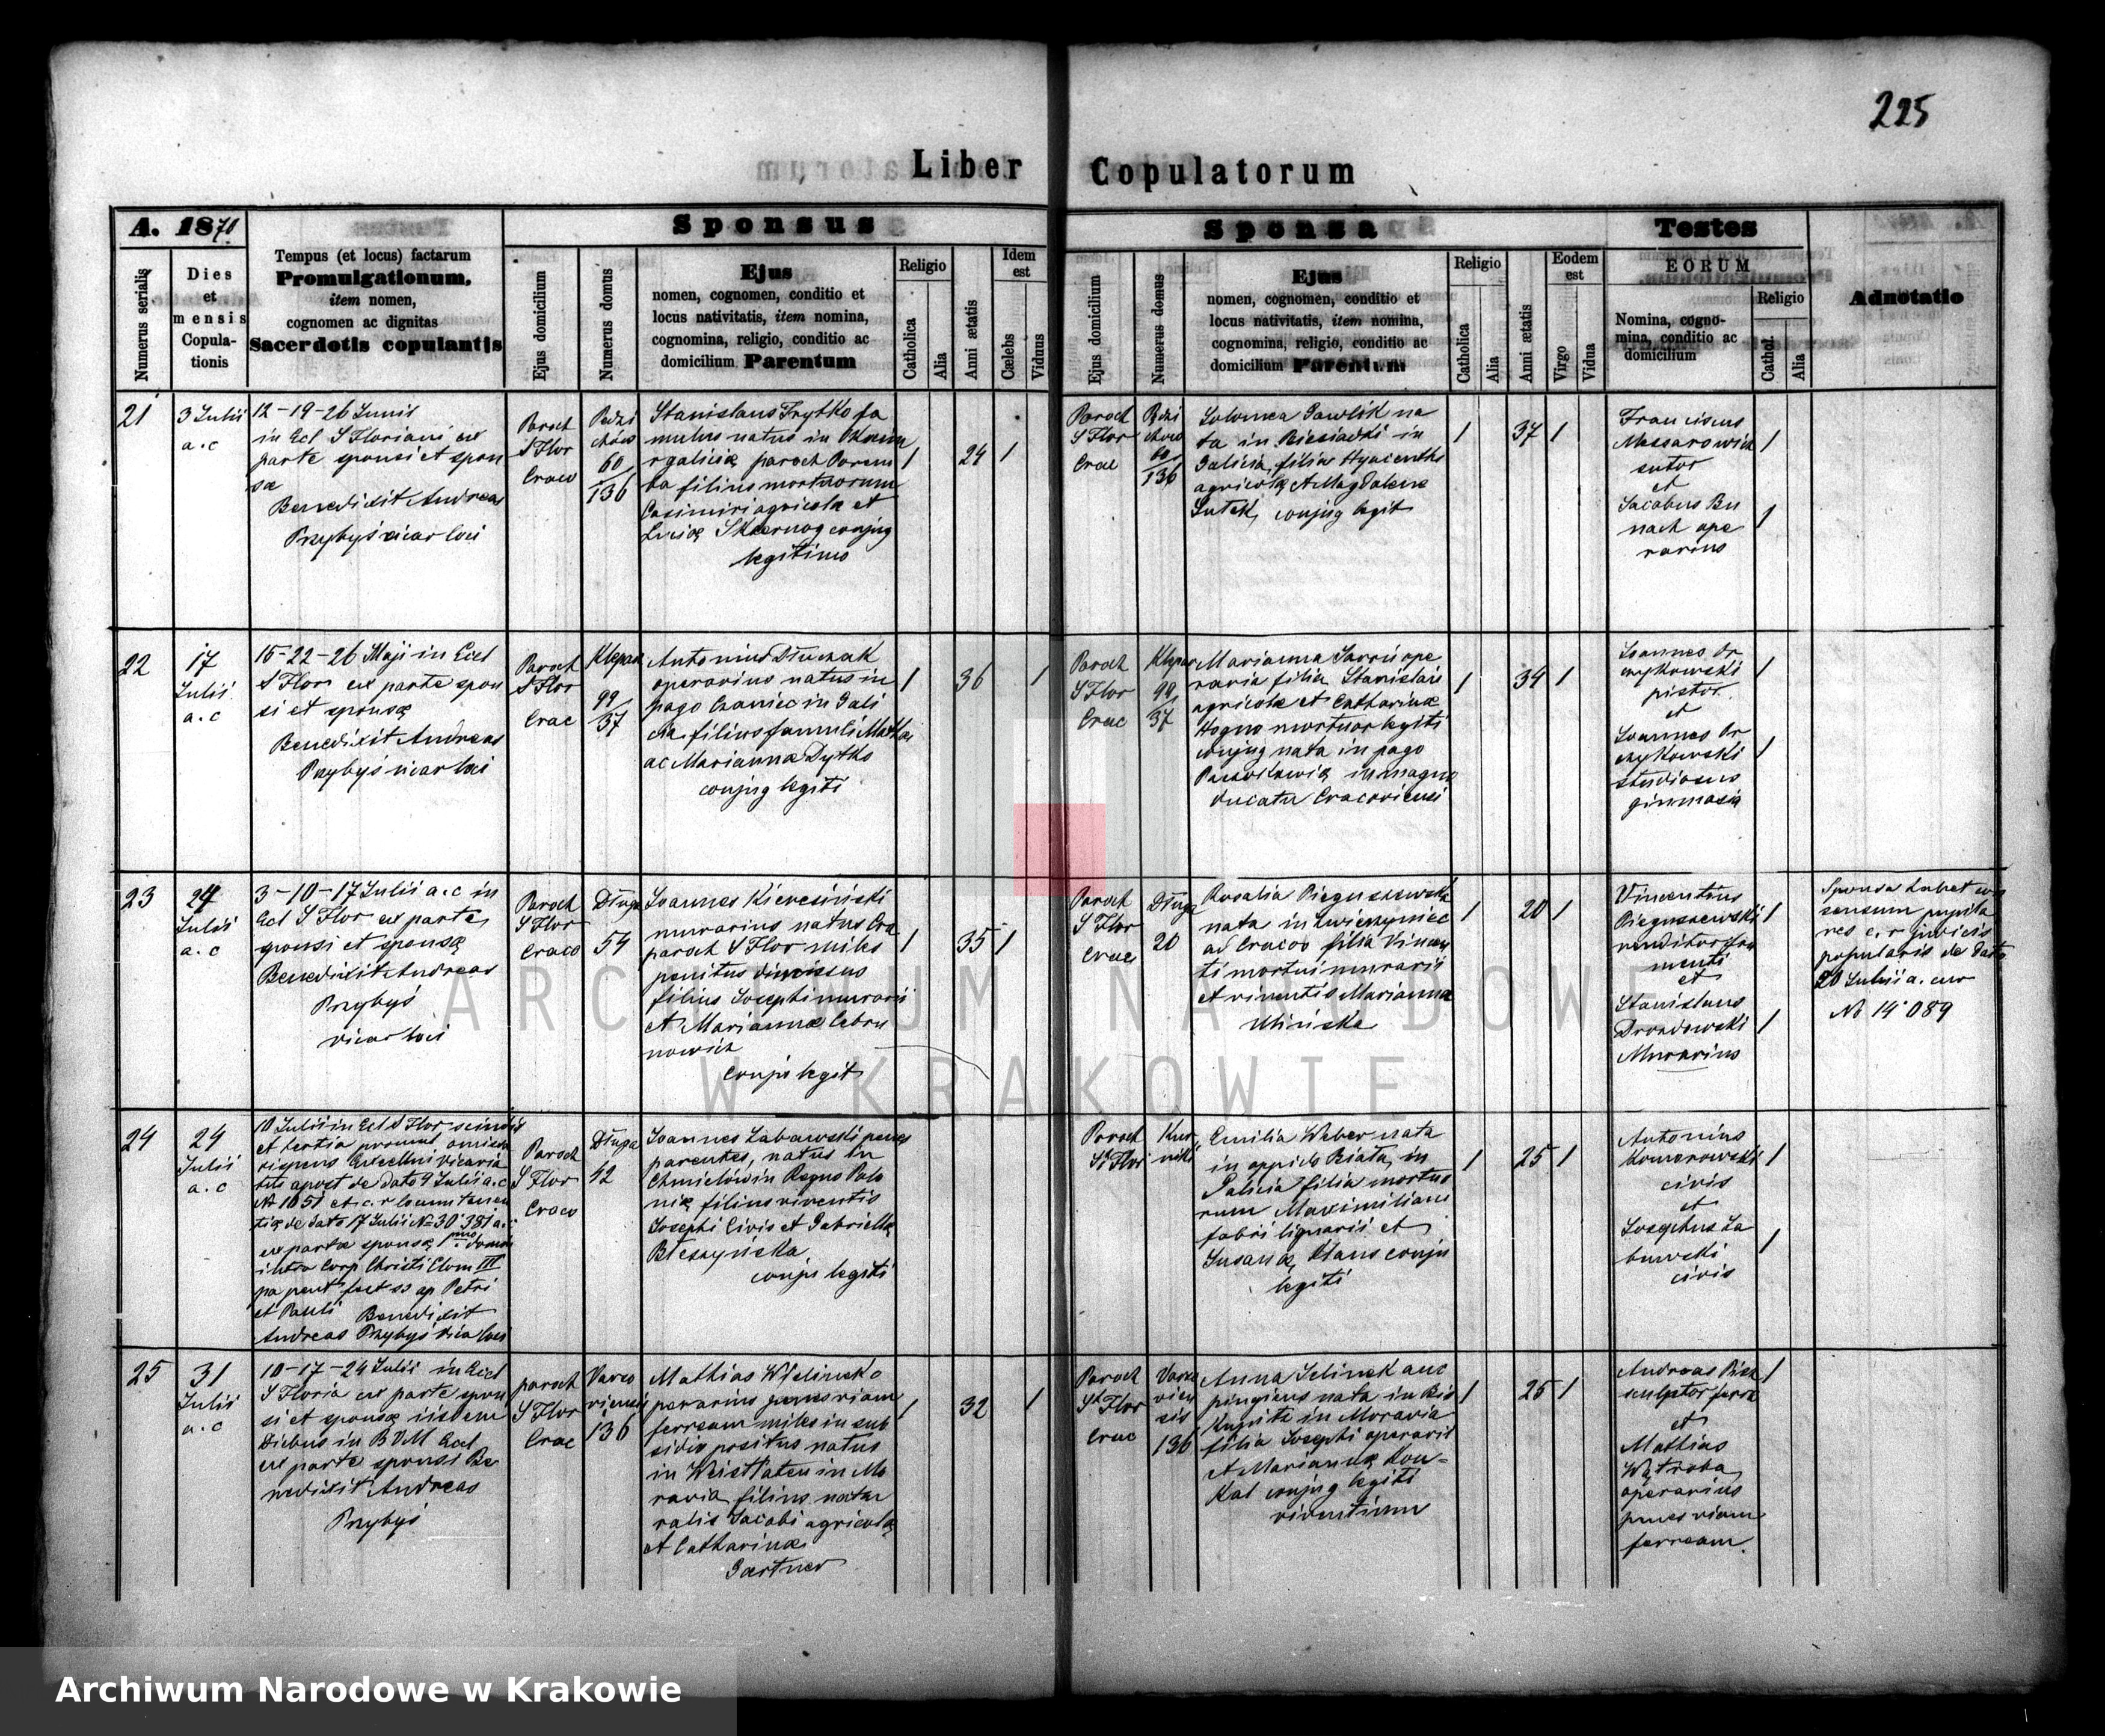 225
Liber Copulatorum
A. 1870
Numerus serialis
Dies
et
mensis
Copula-
tionis
Tempus (et locus) factarum
Promulgationum,
item nomen,
cognomen ac dignitas
Sacerdotis copulantis
Sponsus
Ejus domicilium
Numerus domus
Ejus
nomen, cognomen, conditio et
locus nativitatis, item nomina,
cognomina, religio, conditio ac
domicilium Parentum
Religio
Catholica
Alia
Anni ætatis
Idem
est
Cælebs
Viduus
Sponsa
Ejus domicilium
Numerus domus
Ejus
nomen, cognomen, conditio et
locus nativitatis, item nomina,
cognomina, religio, conditio ac
domicilium Parentum
Religio
Catholica
Alia
Anni ætatis
Eodem
est
Virgo
Vidua
Testes
EORUM
Nomina, cogno-
mina, conditio ac
domicilium
Religio
Cathol.
Alia
Adnotatio
21
3 Julii
a.c
12-19-26 Junii
in Ecl S Floriani ex
parte sponsi et spon
sæ
Benedixit Andreas
Przybyś vicar loci
Paroch
S Flor
Crac
60/136
Stanislaus Frytko fa
mulus natus in
galicia paroch Porem
ba filius mortuorum
Casimiri agricolæ et
Luciæ conjug
legitimo
1
24
1
Paroch
S Flor
Crac
60/136
Salomea Pawlik na
ta in Biesiadki in
Galicia filia Hyacenthi
agricolæ et Magdalenæ
conjug legit
1
37
1
Franciscus
sutor
et
Jacobus Bu
nach ope
rarius
1
1
22
17
Julii
a.c
15-22-26 Maji in Ecl
S Flor ex parte spon
si et sponsæ
Benedixit Andreas
Przybyś vicar loci
Paroch
S Flor
Crac
Klepar
99/37
Antonius Dłużak
operarius natus in
pago Czaniec in Gali
cia filius famuli Mathæi
ac Mariannæ Dytko
conjug legiti
1
36
1
Paroch
S Flor
Crac
Klepar
99/37
Marianna ope
raria filia Stanislai
agricolæ et Catharinæ
mortuor legiti
conjug nata in pago
in magno
ducatu Cracoviensi
1
34
1
Joannes Or
czykowski
pistor
et
Joannes Or
czykowski
studiosus
gimnasia
1
1
23
24
Julii
a.c
3-10-17 Julii a.c in
Ecl S Flor ex parte
sponsi et sponsæ
Benedixit Andreas
Przybyś
vicar loci
Paroch
S Flor
Crac
Długa
54
Joannes
murarius natus Cra
paroch S Flor miles
penitus dimissus
filius Josephi murarii
et Mariannæ Cebru
nowicz
conju legit
1
35
1
Paroch
S Flor
Crac
Długa
20
Rosalia Pieguszewska
nata in Zwierzyniec
ad Cracov filia Vincen
ti mortui murarii
et viventis Marianna
Ulińska
1
20
1
Vincentius
Pieguszewski
venditor fru
menti
et
Stanislaus
Drozdowski
Murarius
1
1
Sponsa habet con
sensum pupila
res c.r judicis
popularis de dato
20 Julii a. cur
No 14 089
24
24
Julii
a.c
10 Julii in Ecl S Flor secunda
et tertia promul omissa
vigore Excelni vicaria
tus apost de dato 9 Julii a.c
No 1051 et c.r locum tenen
tiæ de dato 17 Julii No 30 381 a.c
ex parte sponsæ 1mo domin
infra Corp Christi Dom III
pa pent fest SS ap Petri
et Pauli Benedixit
Andreas Przybyś vica loci
Paroch
S Flor
Crac
Długa
42
Joannes Zabawski penes
parentes, natus in
Chmielów in Regno Polo
niæ filius viventis
Josephi Civis et Gabrielæ
Bleszyńska
conju legiti
Paroch
St Flor
Kur
niki
Emilia Weber nata
in oppido Biała in
Galicia filia mortuo
rum Maximiliani
fabri lignarii et
Susannæ Klaus conju
legiti
1
25
1
Antonius
Komorowski
civis
et
Josephus Za
bawski
civis
1
1
25
31
Julii
a.c
10-17-24 Julii in Ecl
S Floria ex parte spon
si et sponsæ iisdem
Diebus in B V M Ecl
ex parte sponsi Be
nedixit Andreas
Przybyś
paroch
S Flor
Crac
Varso
viensi
136
Mathias Wielinek o
perarius penes viam
ferream miles in sub
sidio positus natus
in Weisslaten in Mo
ravia filius natu
ralis Jacobi agricolæ
et Catharinæ
Gærtner
1
32
1
Paroch
St Flor
Crac
Varso
vien
sis
136
Anna Jelinek
nata in Bis
kupitz in Moravia
filia Josephi operarii
et Mariannæ Kou-
kal conjug legiti
viventium
1
25
1
Andreas
sculptor ferra
et
Mathias
Wątroba
operarius
penes viam
ferream.
1
ARCHIWUM NARODOWE
W KRAKOWIE
Archiwum Narodowe w Krakowie